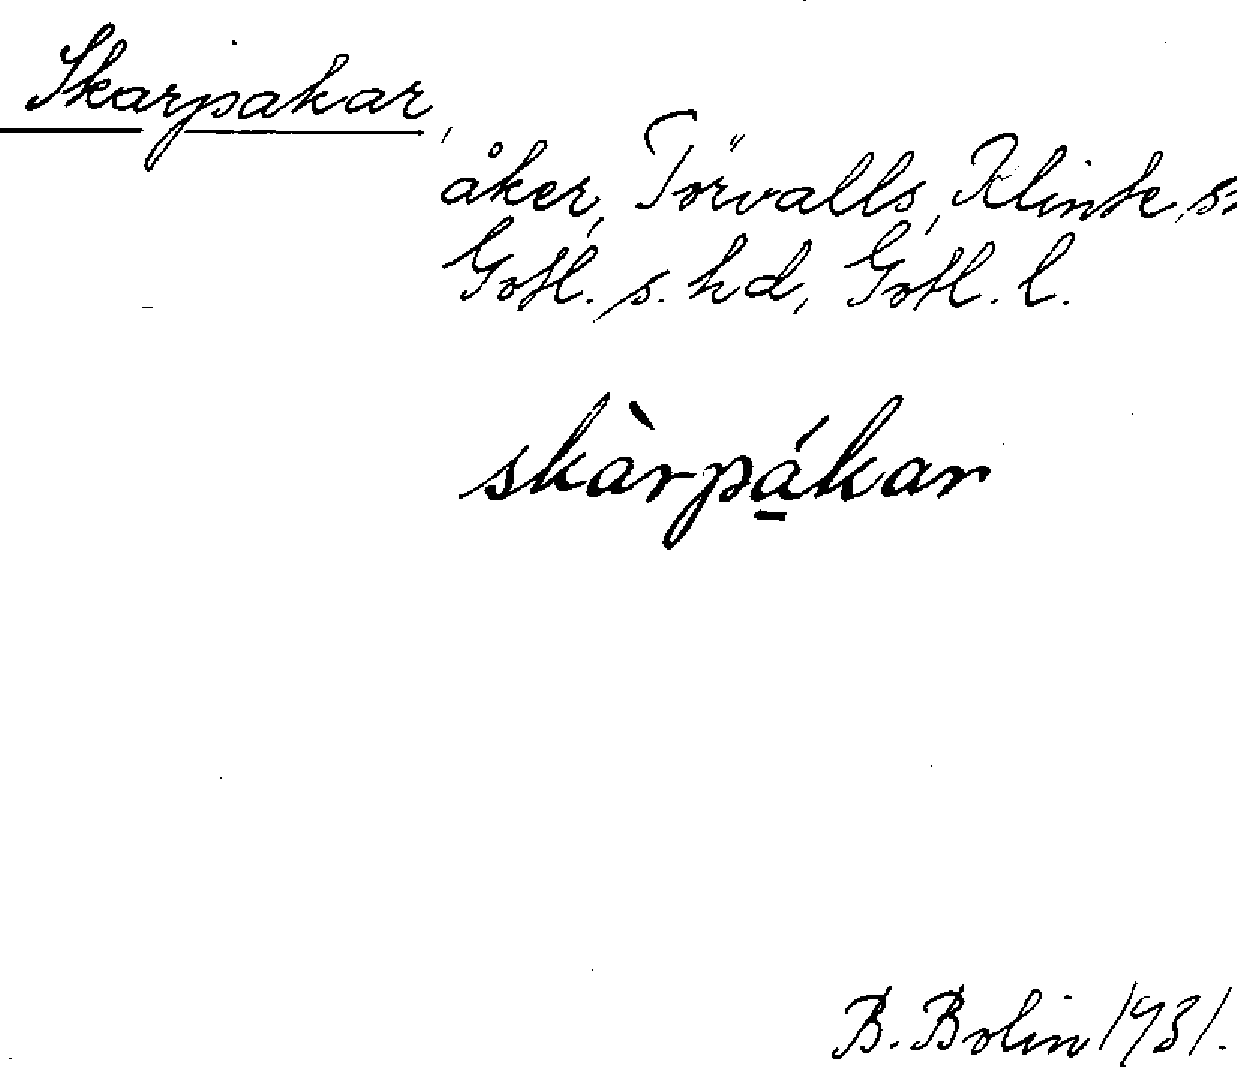 Skarpakar,
åker, Törvalls, Klinte s
Gotl. s. hd, Gotl. l.
skàrpá̱kar
B. Bolin 1931.